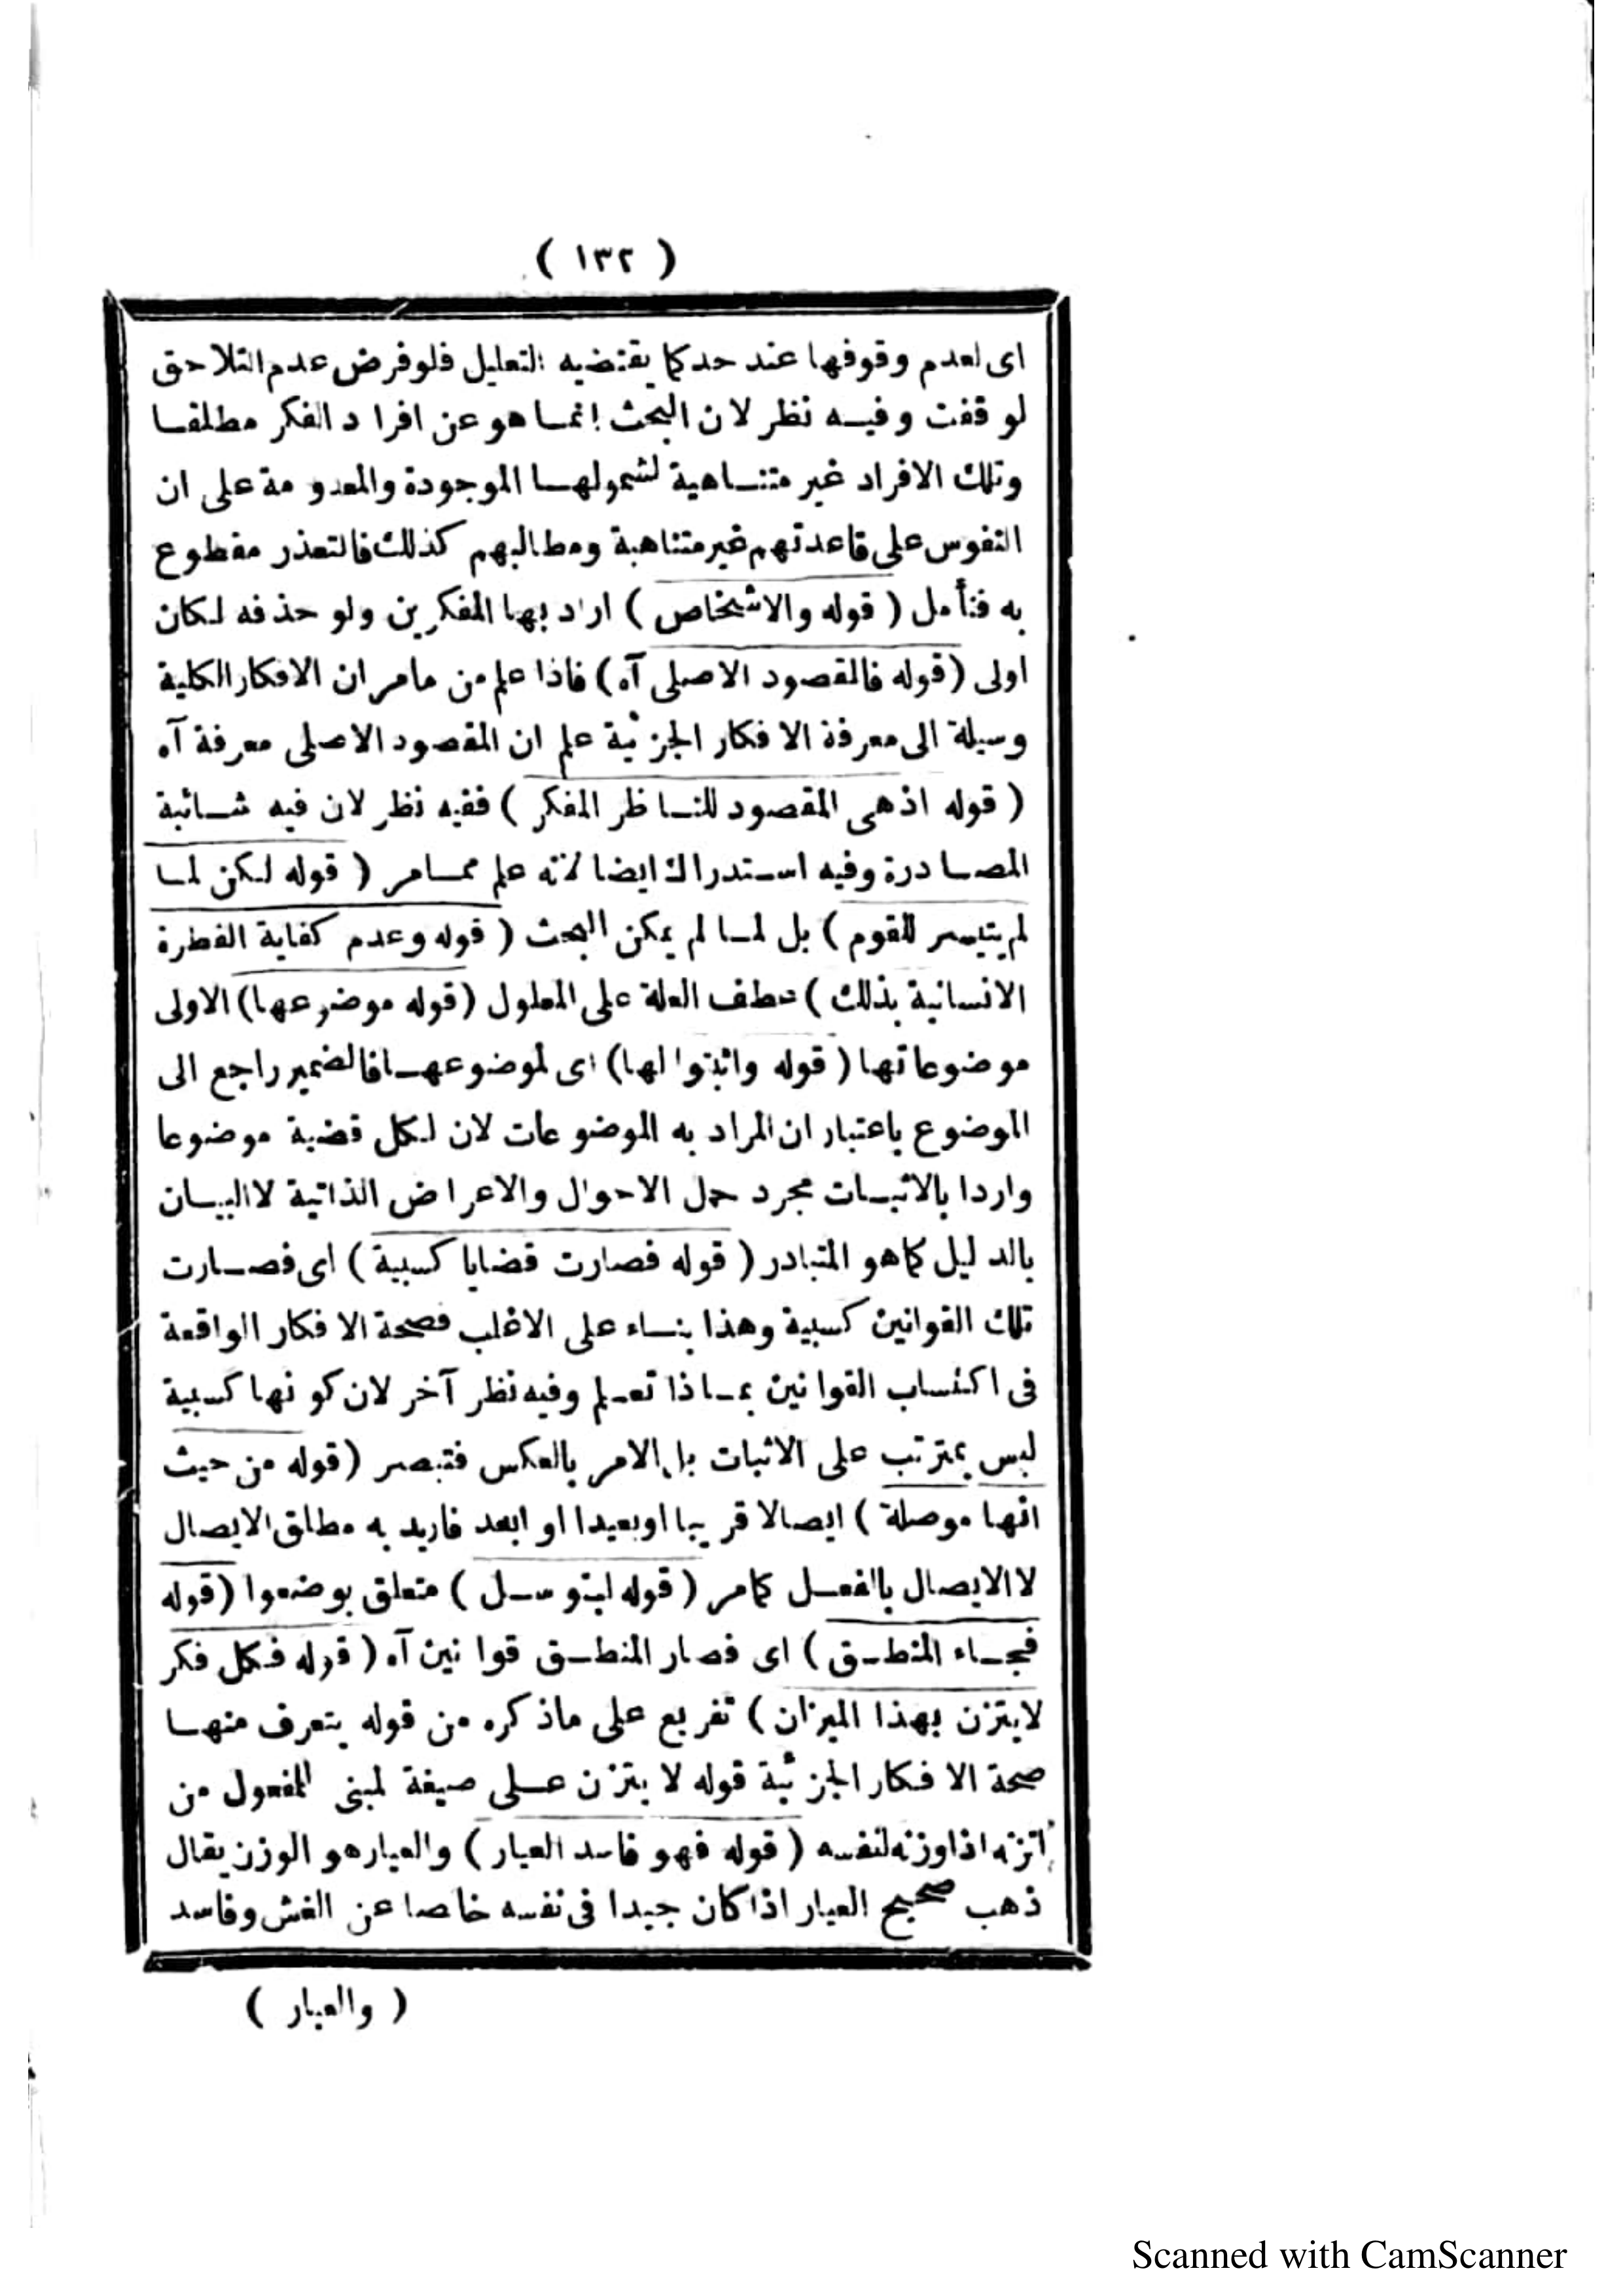 ( ١٣٢ )
اى لعدم وقوفها عند حد كما يقتضيه التعليل فلو فرض عدم التلاحق
لوقفت وفيه نظر لان البحث انما هو عن افراد الفكر مطلقا
وتلك الافراد غير متناهية لشمولها الموجودة والمعدومة على ان
النفوس على قاعدتهم غير متناهية ومطالبهم كذلك فالتعذر مقطوع
به فتأمل ( قوله والاشخاص ) اراد بها المفكرين ولو حذفه لكان
اولى ( قوله فالمقصود الاصلى آه ) فاذا علم من مامر ان الافكار الكلية
وسيلة الى معرفة الافكار الجزئية علم ان المقصود الاصلى معرفة آه
( قوله اذهى المقصود للناظر المفكر ) ففيه نظر لان فيه شائبة
المصادرة وفيه استدراك ايضا لانه علم ممامر ( قوله لكن لما
لم يتيسر للقوم ) بل لما لم يمكن البحث ( قوله وعدم كفاية الفطرة
الانسانية بذلك ) عطف العلة على المعلول ( قوله موضوعها ) الاولى
موضوعاتها ( قوله واثبتوا لها ) اى لموضوعها فالضمير راجع الى
الموضوع باعتبار ان المراد به الموضوعات لان لكل قضية موضوعا
واردا بالاثبات مجرد حمل الاحوال والاعراض الذاتية لا البيان
بالدليل كما هو المتبادر ( قوله فصارت قضايا كسبية ) اى فصارت
تلك القوانين كسبية وهذا بناء على الاغلب فصحة الافكار الواقعة
فى اكتساب القوانين بماذا تعلم وفيه نظر آخر لان كونها كسبية
ليس بمترتب على الاثبات بل الامر بالعكس فتبصر ( قوله من حيث
انها موصلة ) ايصالا قريبا اوبعيدا او ابعد فاريد به مطلق الايصال
لا الايصال بالفعل كمامر ( قوله ليتوسل ) متعلق بوضعوا ( قوله
فجاء المنطق ) اى فصار المنطق قوانين آه ( قوله فكل فكر
لايتزن بهذا الميزان ) تفريع على ماذكره من قوله يتعرف منها
صحة الافكار الجزئية قوله لا يتزن على صيغة لمبنى المفعول من
اتزنه اذا وزنه لنفسه ( قوله فهو فاسد العيار ) والعيار هو الوزن يقال
ذهب صحيح العيار اذا كان جيدا فى نفسه خاصا عن الغش وفاسد
( والعيار )
Scanned with CamScanner